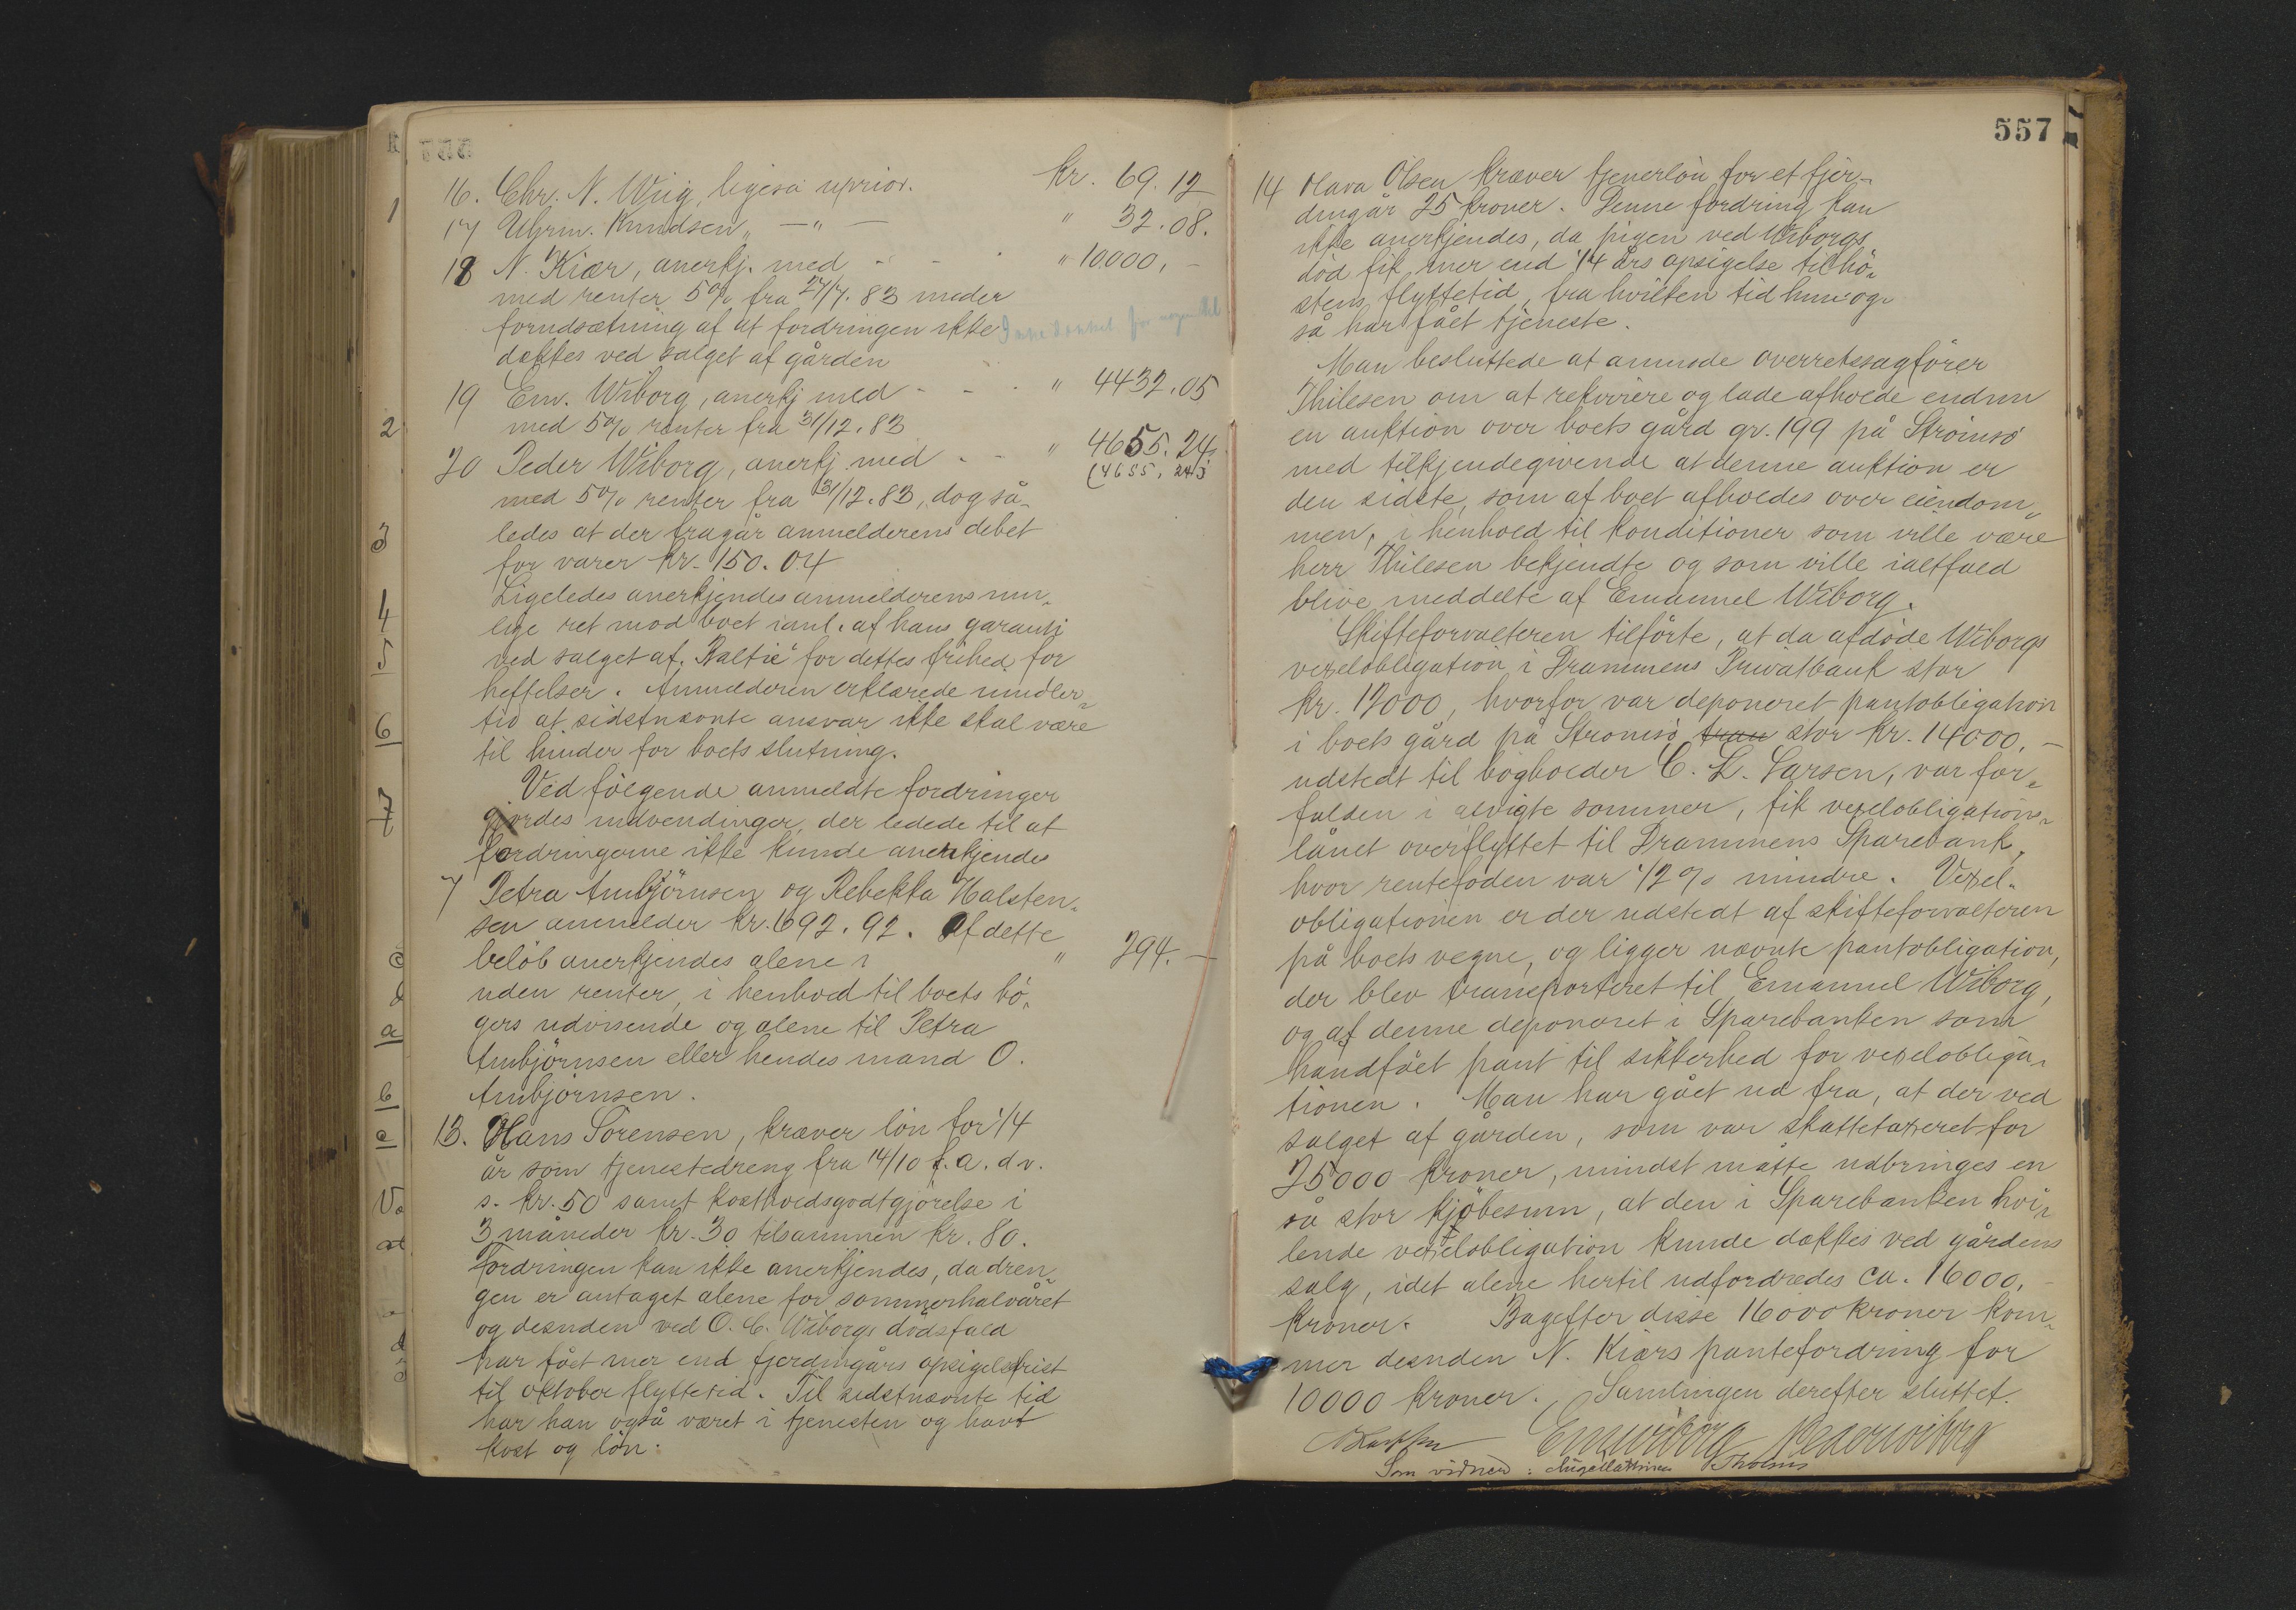 16. Chr. N. Wiig, ligeså uprior. kr. 69.12
17 Uhrm. Knudsen „ — " — " 32.08.
18 N. Kiær, anerkj. med - - - " 10.000, -
med renter 5% fra 27/7. 83 under
forudsætning af at fordringen ikke
dækkes ved salget af gården
19 Em. Wiborg, anerkj med - - - " 4432.05
med 5% renter fra 31/12. 83
20 Peder Wiborg, anerkj. med - - " 4655.24.
(4655.24)
med 5% renter fra 31/12. 83, dog så-
ledes at der fragår anmelderens debet
for varer kr. 150.04
Ligeledes anerkjendes anmelderens mu-
lige ret mod boet ianl. af hans garanti
ved salget af "Baltic" for dettes frihed for
heftelser. Anmelderen erklærede imidler-
tid at sidstnævnte ansvar ikke skal være
til hinder for boets slutning.
Ved følgende anmeldte fordringer
gjordes indvendinger, der ledede til at
fordringerne ikke kunde anerkjendes
7 Petra Ambjörnsen og Rebekka Halsten-
sen anmelder kr. 692.92. Af dette
beløb anerkjendes alene " 294. —
uden renter, i henhold til boets bø-
gers udvisende og alene til Petra
Ambjörnsen eller hendes mand O.
Ambjörnsen.
13. Hans Sörensen, kræver lön for 1/4
år som tjenestedreng fra 14/10 f. a. d. v.
s. kr. 50 samt kostholdsgodtgjörelse i
3 måneder kr. 30 tilsammen kr. 80.
Fordringen kan ikke anerkjendes, da dren-
gen er antaget alene for sommerhalvåret
og desuden ved O. C. Wiborgs dödsfald
har fået mer end fjerdingårs opsigelsfrist
til oktober flyttetid. Til sidstnævnte tid
har han også været i tjenesten og havt
kost og lön.
557
14 Olava Olsen kræver tjenerlön for et fjer-
dingår 25 kroner. Denne fordring kan
ikke anerkjendes, da pigen ved Wiborgs
död fik mer end 1/4 års opsigelse til hö-
stens flyttetid, fra hvilken tid hun og-
så har fået tjeneste.
Man besluttede at anmode overretssagfører
Thilesen om at rekvirere og lade afholde endnu
en auktion over boets gård gr. 199 på Strömsö
med tilkjendegivende at denne auktion er
den sidste, som af boet afholdes over eiendom-
men, i henhold til konditioner som ville være
herr Thilesen bekjendte og som ville ialtfald
blive meddelte af Emanuel Wiborg.
Skifteforvalteren tilförte, at da afdöde Wiborgs
vexelobligation i Drammens Privatbank stor
kr. 17000, hvorfor var deponeret pantobligation
i boets gård på Strömsö, stor kr. 14000, —
udstedt til bogholder C. L. Larsen, var for-
falden i afvigte sommer, fik vexelobligations-
lånet overflyttet til Drammens Sparebank,
hvor rentefoden var 1/2 % mindre. Vexel-
obligationen er der udstedt af skifteforvalteren
på boets vegne, og ligger nævnte pantobligation,
der blev transporteret til Emanuel Wiborg,
og af denne deponeret i Sparebanken som
håndfået pant til sikkerhed for vexelobliga-
tionen. Man har gået ud fra, at der ved
salget af gården, som var skattetaxeret for
25000 kroner, mindst måtte udbringes en
så stor kjöbesum, at den i Sparebanken hvi-
lende vexelobligation kunde dækkes ved gårdens
salg, idet alene hertil udfordredes ca. 16000, -
kroner. Bagefter disse 16000 kroner kom-
mer desuden N. Kiærs pantefordring for
10000 kroner. Samlingen derefter sluttet.
Em Wiborg Peder Wiborg
Som vidner: